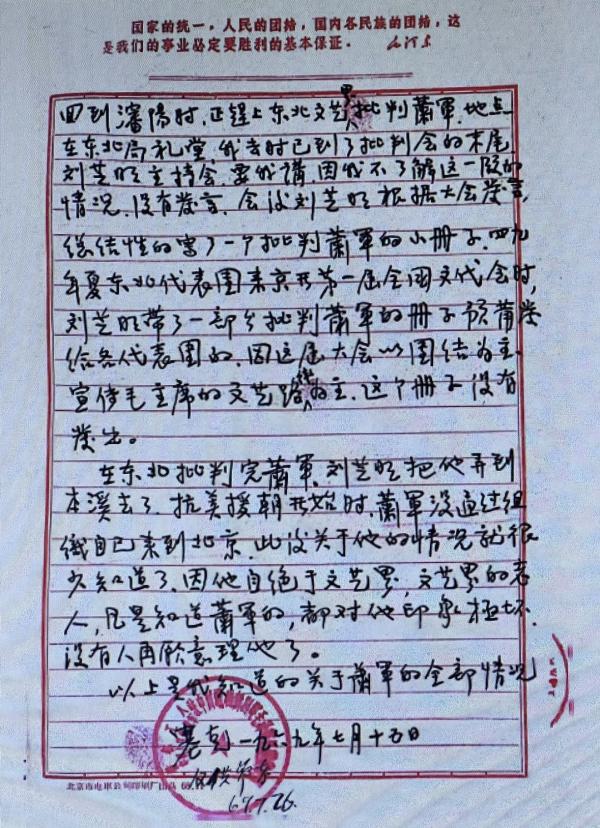 国家的统一，人民的团结，国内各民族的团结，这
是我们的事业必定要胜利的基本保证。 毛泽东
回到瀋陽时，正趕上东北文艺界批判蕭軍，地点
在东北局礼堂，我去时已到了批判会的末尾
刘芝明主持会，要我講，因我不了解这一段的
情况，没有发言，会议刘芝明根据大会发言，
总结性的写了一个批判蕭軍的小册子，四九
年夏东北代表团来京开第一届全国文代会时，
刘芝明带了一部分批判蕭軍的册子预备发
给各代表团的，因这届大会以团结为主，
宣传毛主席的文艺路线为主，这个册子没有
发出。
在东北批判完蕭軍，刘芝明把他弄到
本溪去了，抗美援朝开始时，蕭軍没通过组
織自己来到北京，此后关于他的情况就很
少知道了，因他自绝于文艺界，文艺界的老
人，凡是知道蕭軍的，都对他印象極坏，
没有人再願意理他了。
以上是我知道的关于蕭軍的全部情况
一九六九年七月十五日
69.7.26.
北京市电車公司印刷厂出品